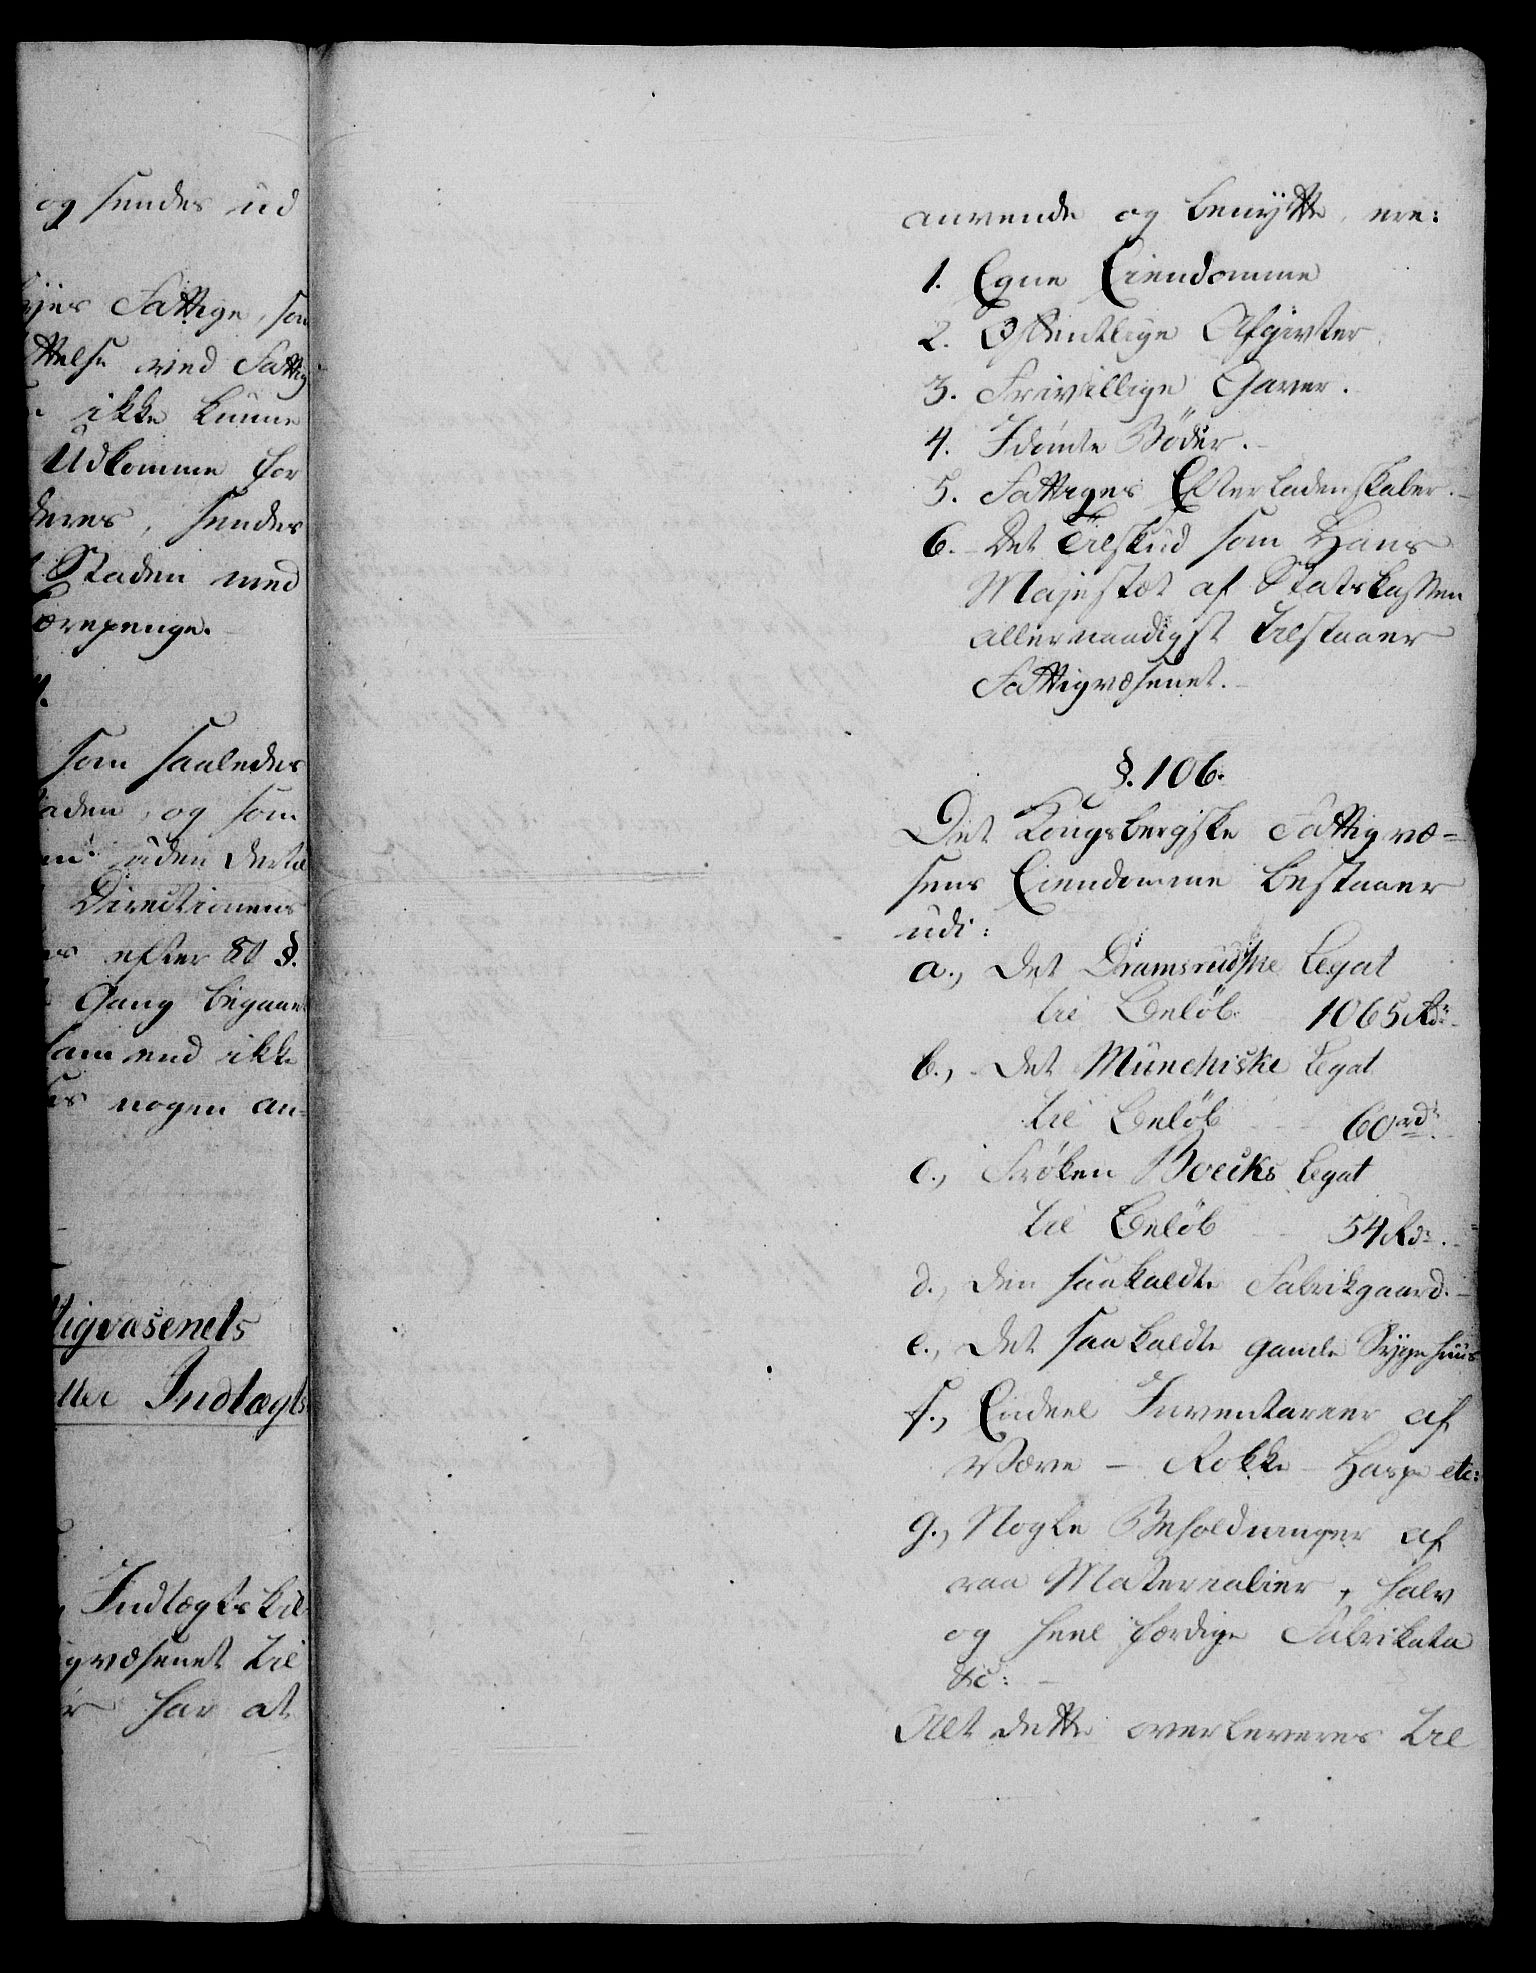 og sendes ud
Fattige, som
ttelse ved Fattig
ikke kunne
Udkomme for
deres, sendes
Staden med
ærepenge.
som saaledes
aden, og som
uden dertil
Directionens
efter 80 §.
Gang begaaet
end ikke
nogen an-
tigvæsenets
eller Indtægts
Indtægtskil
gvæsenet til
har at
anvende og benytte, ere:
1. Egne Eiendomme
2. Offentlige Afgivter
3. Frivillige Gaver.
4. Idømte Böder.
5. Fattiges Efterladenskaber.
6. Det Tilskud som Hans
Majestæt af Statskassen
allernaadigst tilstaaer
Fattigvæsenet.
§. 106.
Det Kongsbergske Fattigvæ-
sens Eiendomme bestaaer
udi:
a., Det Dramsrudske Legat
til Belöb 1065 Rdr
b., Det Münchiske Legat
til Belöb 60 rdr
c., Frøken Boecks Legat
til Beløb 54 Rdr.
d., Den saakaldte Fabrikgaard.
e., Det saakaldte gamle Sygehuus
f., Endeel Inventareer af
Væve - Rokke - Haspe etc:
g., Nogle Beholdninger af
raa Materialier, halv
og heel færdige Fabrikata
&c:
Alt dette overleveres til